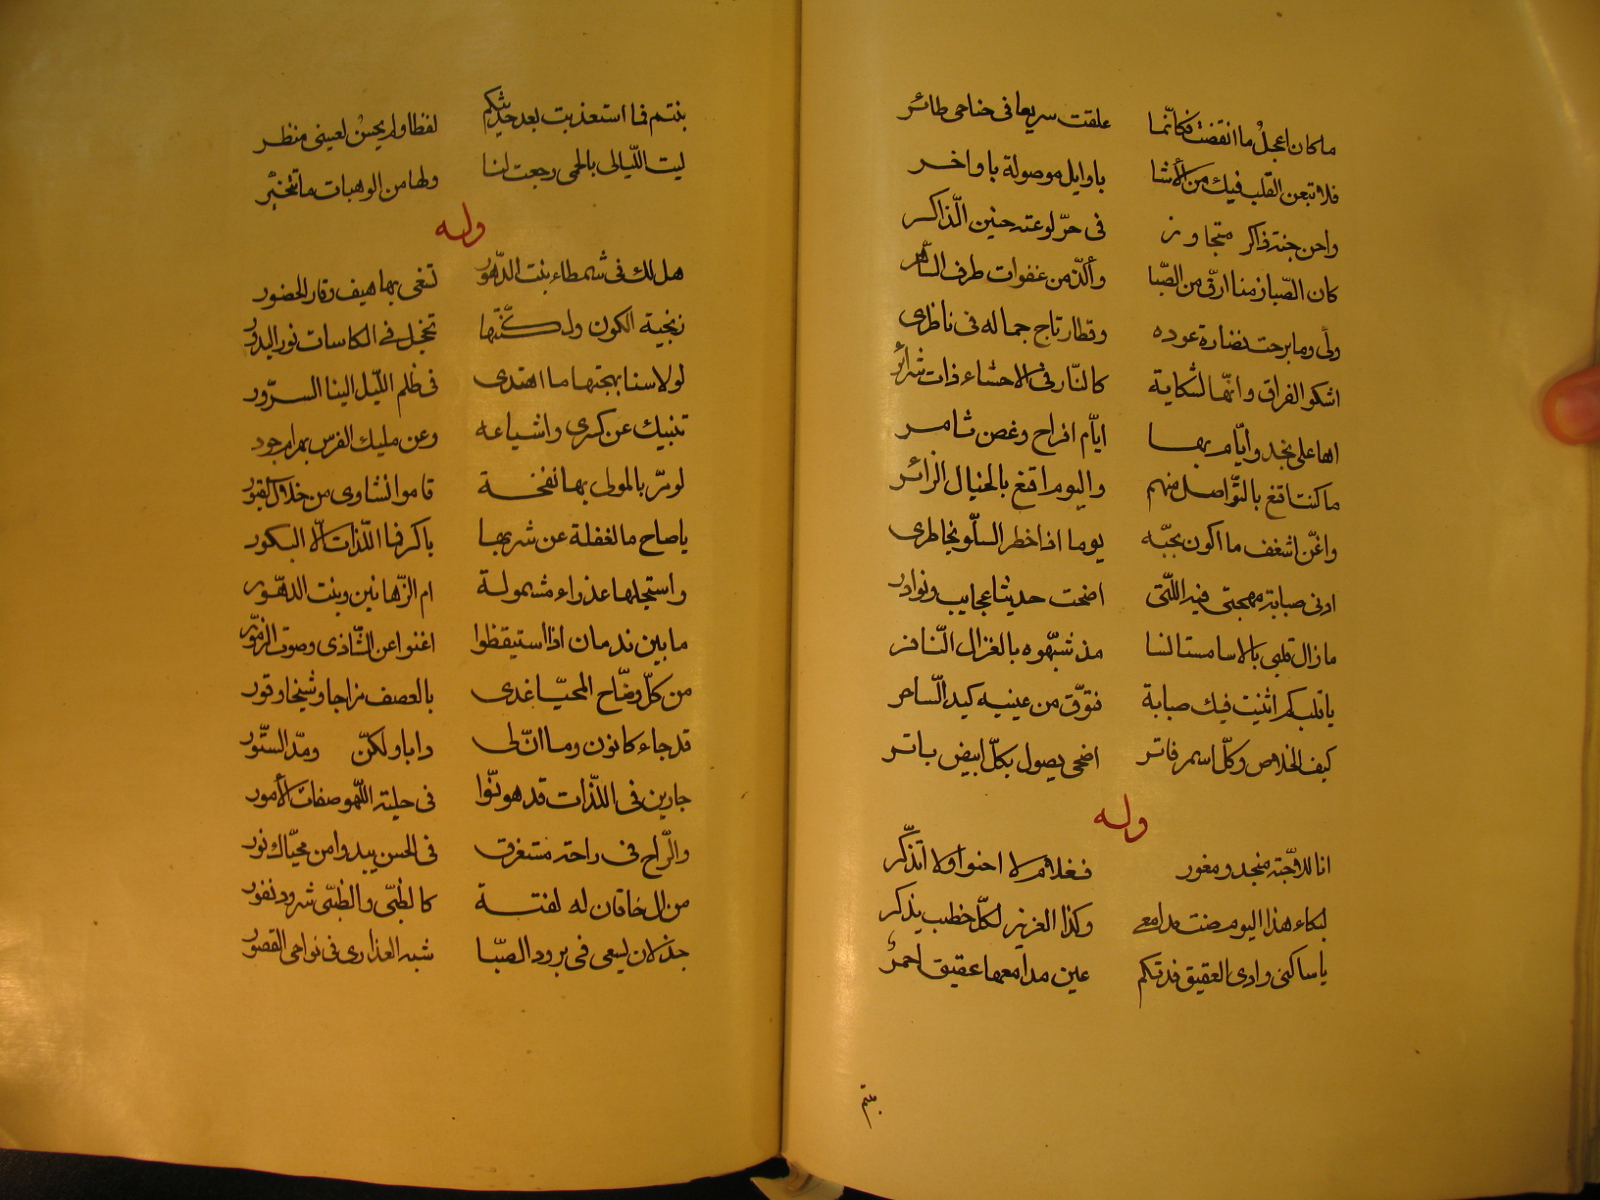 ما كان اعجل ما انقضت فكأنما علقت سريعا فى جناحى طائر
فلا تبعن القلب فيك من الأشا باوايل موصولة باواخر
واحن جنة ذاكر متجاوز فى حرّ لوعته حنين الذّاكر
كان الصّبا زمنا ارقّ من الصّبا وألذّ من غفوات طرف السّاهر
ولّى وما برحت نضارة عوده وقطار تاج جماله فى ناظرى
اشكو الفراق وانّها لشكاية كالنّار فى الاحشاء ذات شرائر
اها على نجد وأيّام بها ايّام افراح وغصن ثامر
ما كنت اقنع بالتّواصل منهم واليوم اقنع بالخيال الزائر
واغنّ اشغف ما اكون بحبّه يوما اذا خطر السّلو بخاطرى
ادنى صبابة مهجتى فيه اللّتى اضحت حديثا عجايب ونوادر
ما زال قلبى بالاسا مستالسا مذ شبّهوه بالغزال النّافر
يا قلب كم اثنيت فيك صبابة فتوّق من عينيه كيد السّاحر
كيف الخلاص وكلّ اسمر فاتر اضحى يصول بكلّ ابيض باتر
وله
انا للاحبّة منجد ومغور فعلام لا احنوا ولا اتذكّر
لبكاء هذا اليوم صنت مدامعى وكذا العزيز لكلّ خطب يذكر
يا ساكنى وادى العقيق فدتكم عين مدامعها عقيق احمر
بنتم
بنتم فما استعذبت بعد حديثكم لفظا ولم يحسن لعينى منظر
ليت اللّيالى بالحمى رجعت لنا ولها من الوهبات ما تتخيّر
وله
هل لك فى شمطاء بنت الدّهور تنغى بها هيف وقار الحضور
نخبة الكون ولد كنّتها تخجل فى الكاسات نور البدور
لولا سنا بهجتها ما اهتدى فى ظلم اللّيل الينا السرّور
تنبيك عن كسرى واشياعه وعن مليك الفرس بهرام جود
لو مرّ بالمولى بها نفخة قاموا نشاوى من خلال القبور
يا صاح ما لغفلة عن شربها باكر فما اللّذات الّا البكور
واستجلها عذراء مشمولة ام الزّهانين وبنت الدهّور
ما بين ندمان اذا استيقظوا اغنوا عن الشّادى وصوت الزمّور
من كلّ وضّاح المحيّا غدى بالعصف مزاجا وشيخا وقور
قد جاء كانون وما انّ لى دابا ولكنّ ومدّ الستّور
جارين فى اللذّات قد هونّوا فى حلية اللّهو صفات الأمور
والرّاح فى راحة مستغرق فى الحسن يبدوا من محيّاك نور
من ال خاقان له لفتة كالظبى والظبّى شرود نفور
جذلان يسعى فى برود الصبّا شبه العذارى فى نواحى القصور